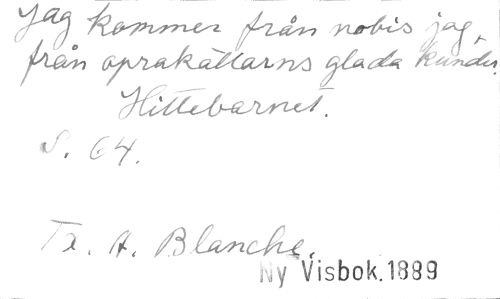 Jag kommer från nobis jag,
från oprakällarns glada kunder.
Hittebarnet.
S. 64.
Tx. A. Blanche.
Ny Visbok. 1889